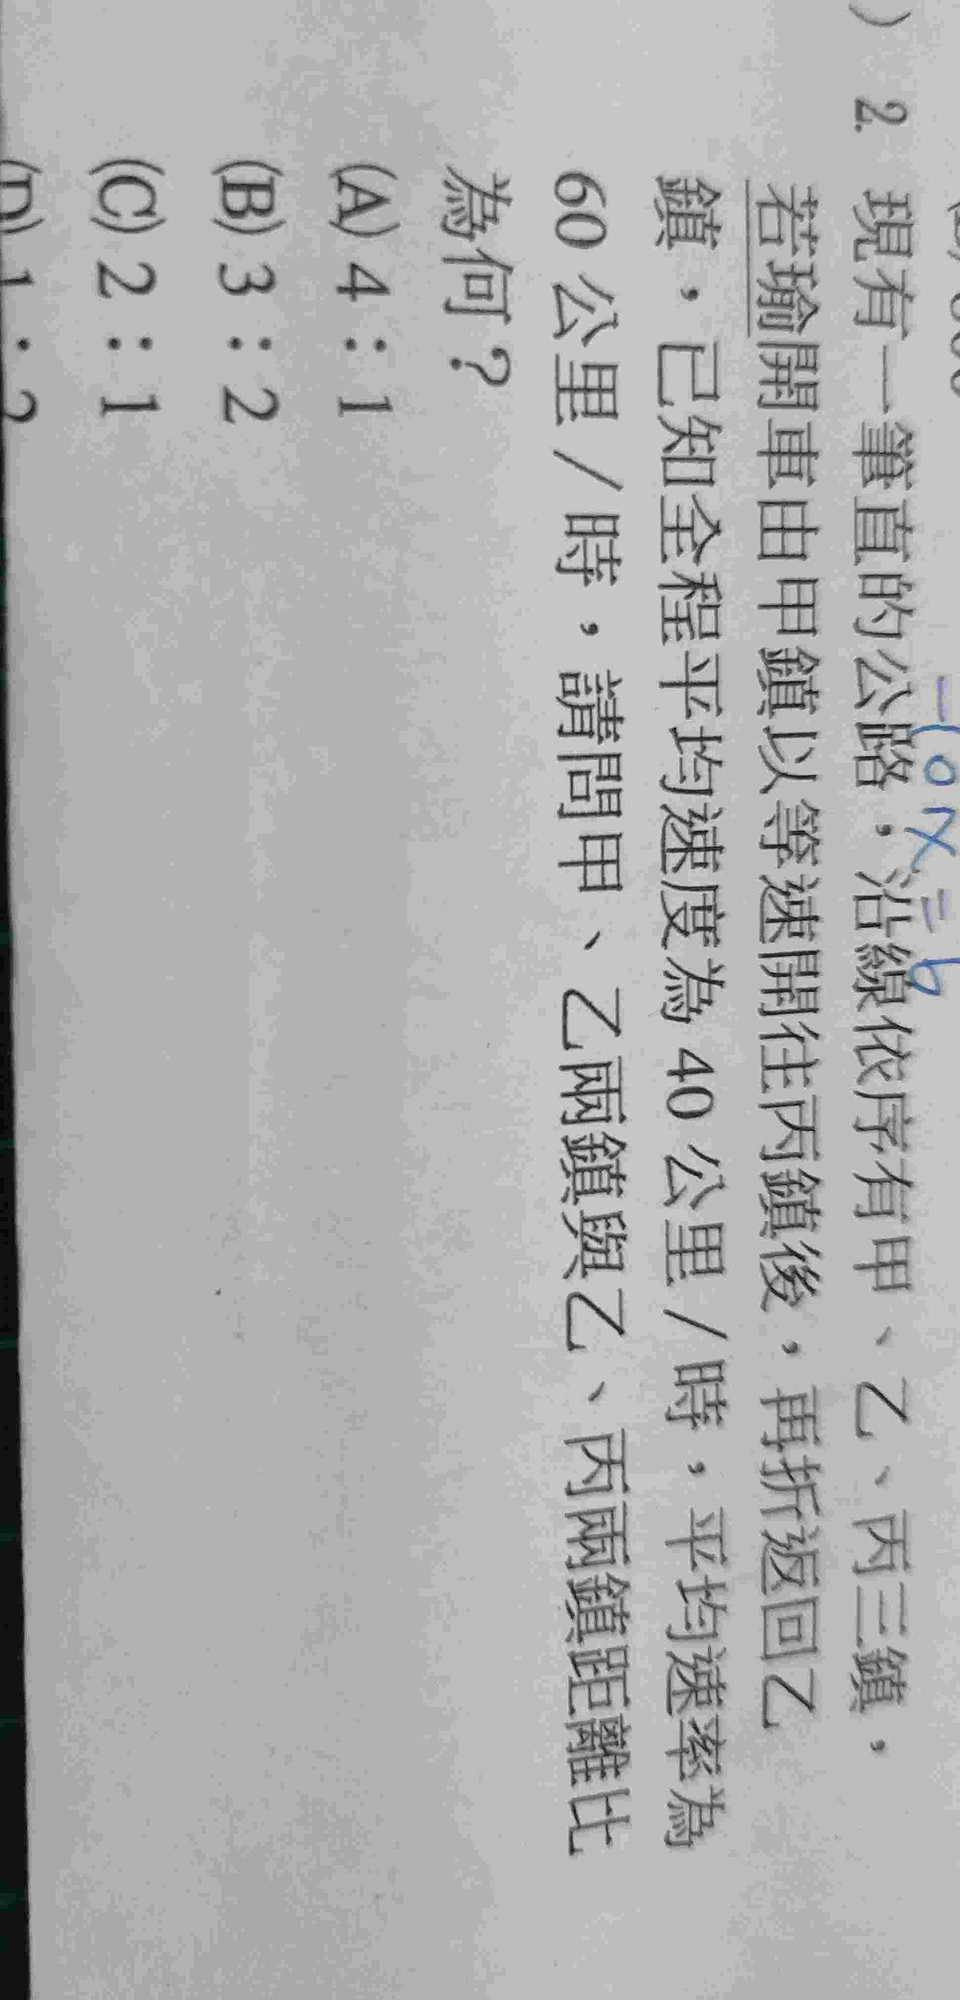 ) 2. 現有一筆直的公路，沿線依序有甲、乙、丙三鎮，
若瑜開車由甲鎮以等速開往丙鎮後，再折返回乙
鎮，已知全程平均速度為 40 公里／時，平均速率為
60 公里／時，請問甲、乙兩鎮與乙、丙兩鎮距離比
為何？
(A) 4：1
(B) 3：2
(C) 2：1
(D) 1：2